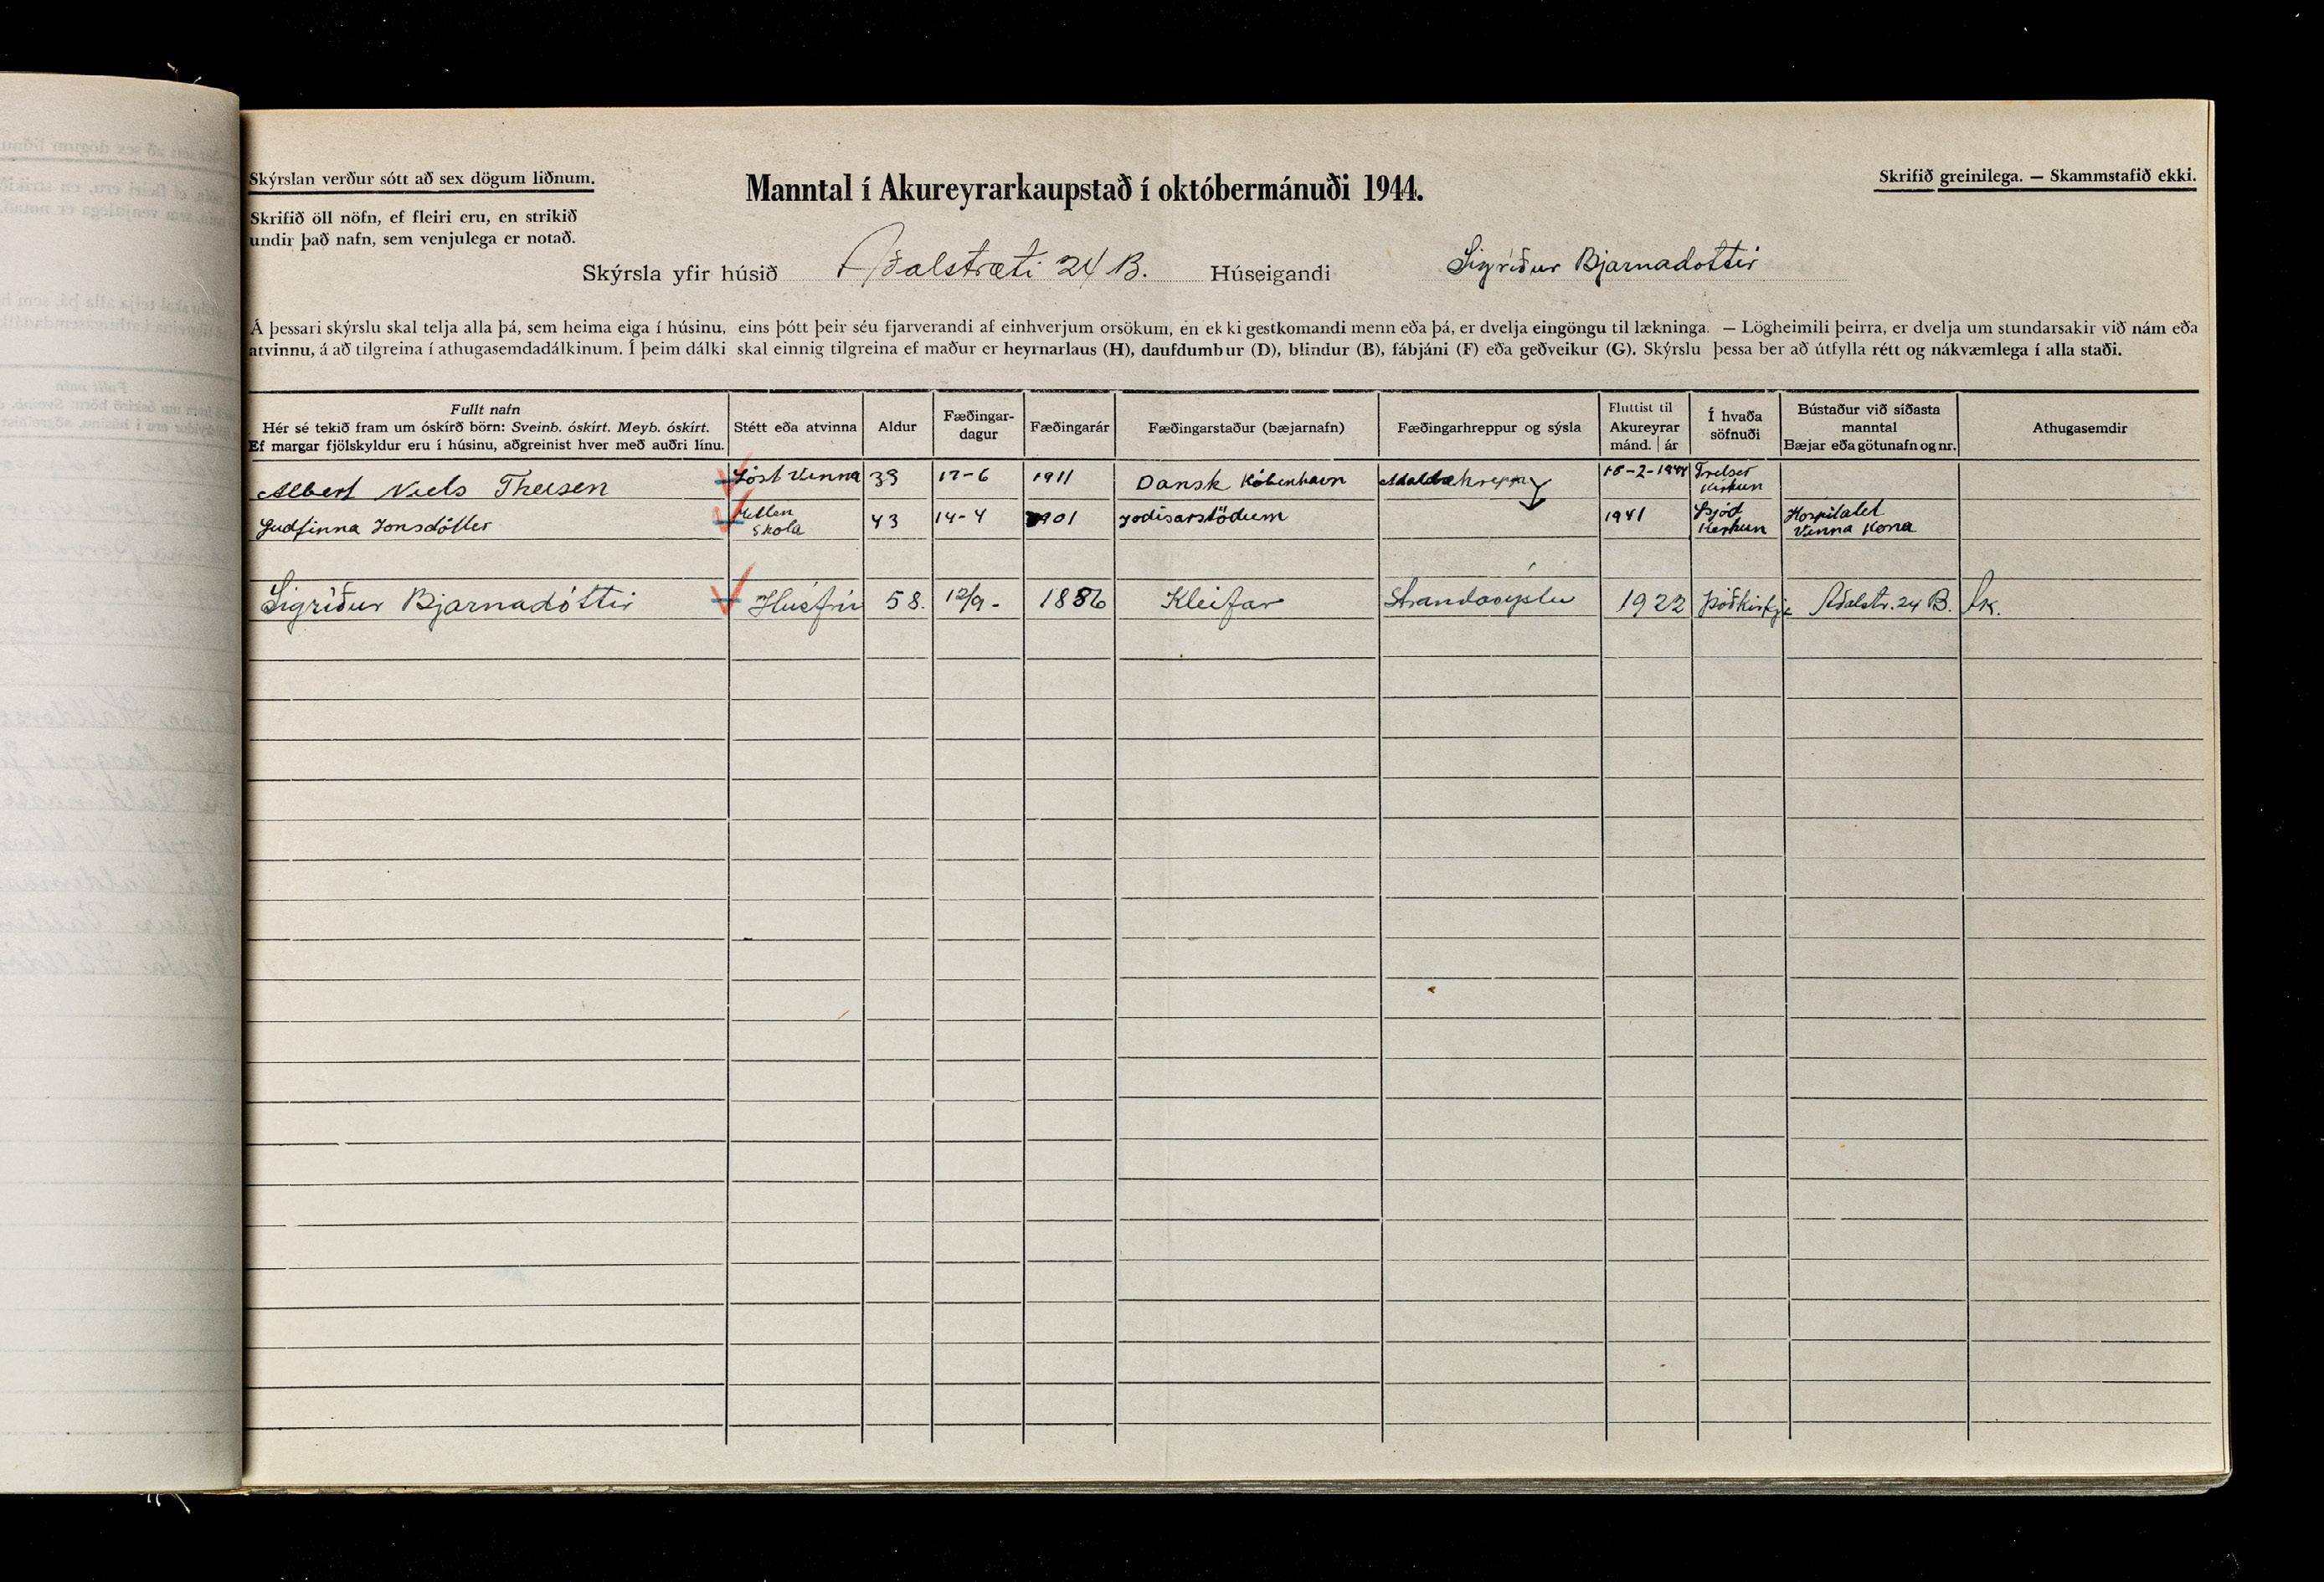 Skýrslan verður sótt að sex dögum liðnum.
Manntal í Akureyrarkaupstað í októbermánuði 1944.
Skrifið greinilega. — Skammstafið ekki.
Skrifið öll nöfn, ef fleiri eru, en strikið
undir það nafn, sem venjulega er notað.
Skýrsla yfir húsið Aðalstræti 24 B. Húseigandi Sigríður Bjarnadottir
Á þessari skýrslu skal telja alla þá, sem heima eiga í húsinu, eins þótt þeir séu fjarverandi af einhverjum orsökum, en ekki gestkomandi menn eða þá, er dvelja eingöngu til lækninga. — Lögheimili þeirra, er dvelja um stundarsakir við nám eða
atvinnu, á að tilgreina í athugasemdadálkinum. Í þeim dálki skal einnig tilgreina ef maður er heyrnarlaus (H), daufdumbur (D), blindur (B), fábjáni (F) eða geðveikur (G). Skýrslu þessa ber að útfylla rétt og nákvæmlega í alla staði.
Fullt nafn
Hér sé tekið fram um óskírð börn: Sveinb. óskírt. Meyb. óskírt.
Ef margar fjölskyldur eru í húsinu, aðgreinist hver með auðri línu.
Stétt eða atvinna
Aldur
Fæðingar-
dagur
Fæðingarár
Fæðingarstaður (bæjarnafn)
Fæðingarhreppur og sýsla
Fluttist til
Akureyrar
mánd. | ár
Í hvaða
söfnuði
Bústaður við síðasta
manntal
Bæjar eða götunafn og nr.
Athugasemdir
Albert Niels Theisen Vinna 33 17-6 1911 Dansk Köbenhavn 18-2-1944 Frelser
Kirkun
Gudfinna Jonsdótter 43 14-4 1901 Jodisarstödum 1941 Hospitalet
Skola Vinna Kona
Sigríður Bjarnadóttir Húsfrú 58. 12/9- 1886 Kleifar Strandasýslu 1922 Þjóðkirkja Aðalstr. 24 B.